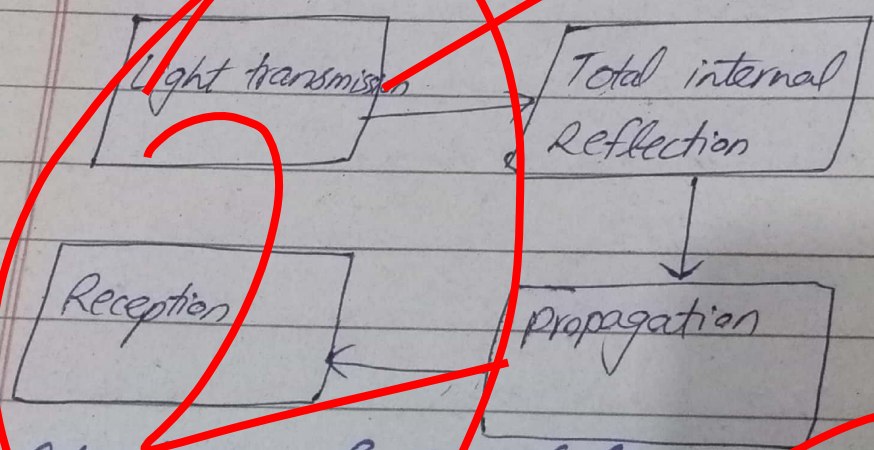 Light transmission
Total internal
Reflection
Propagation
Reception
2